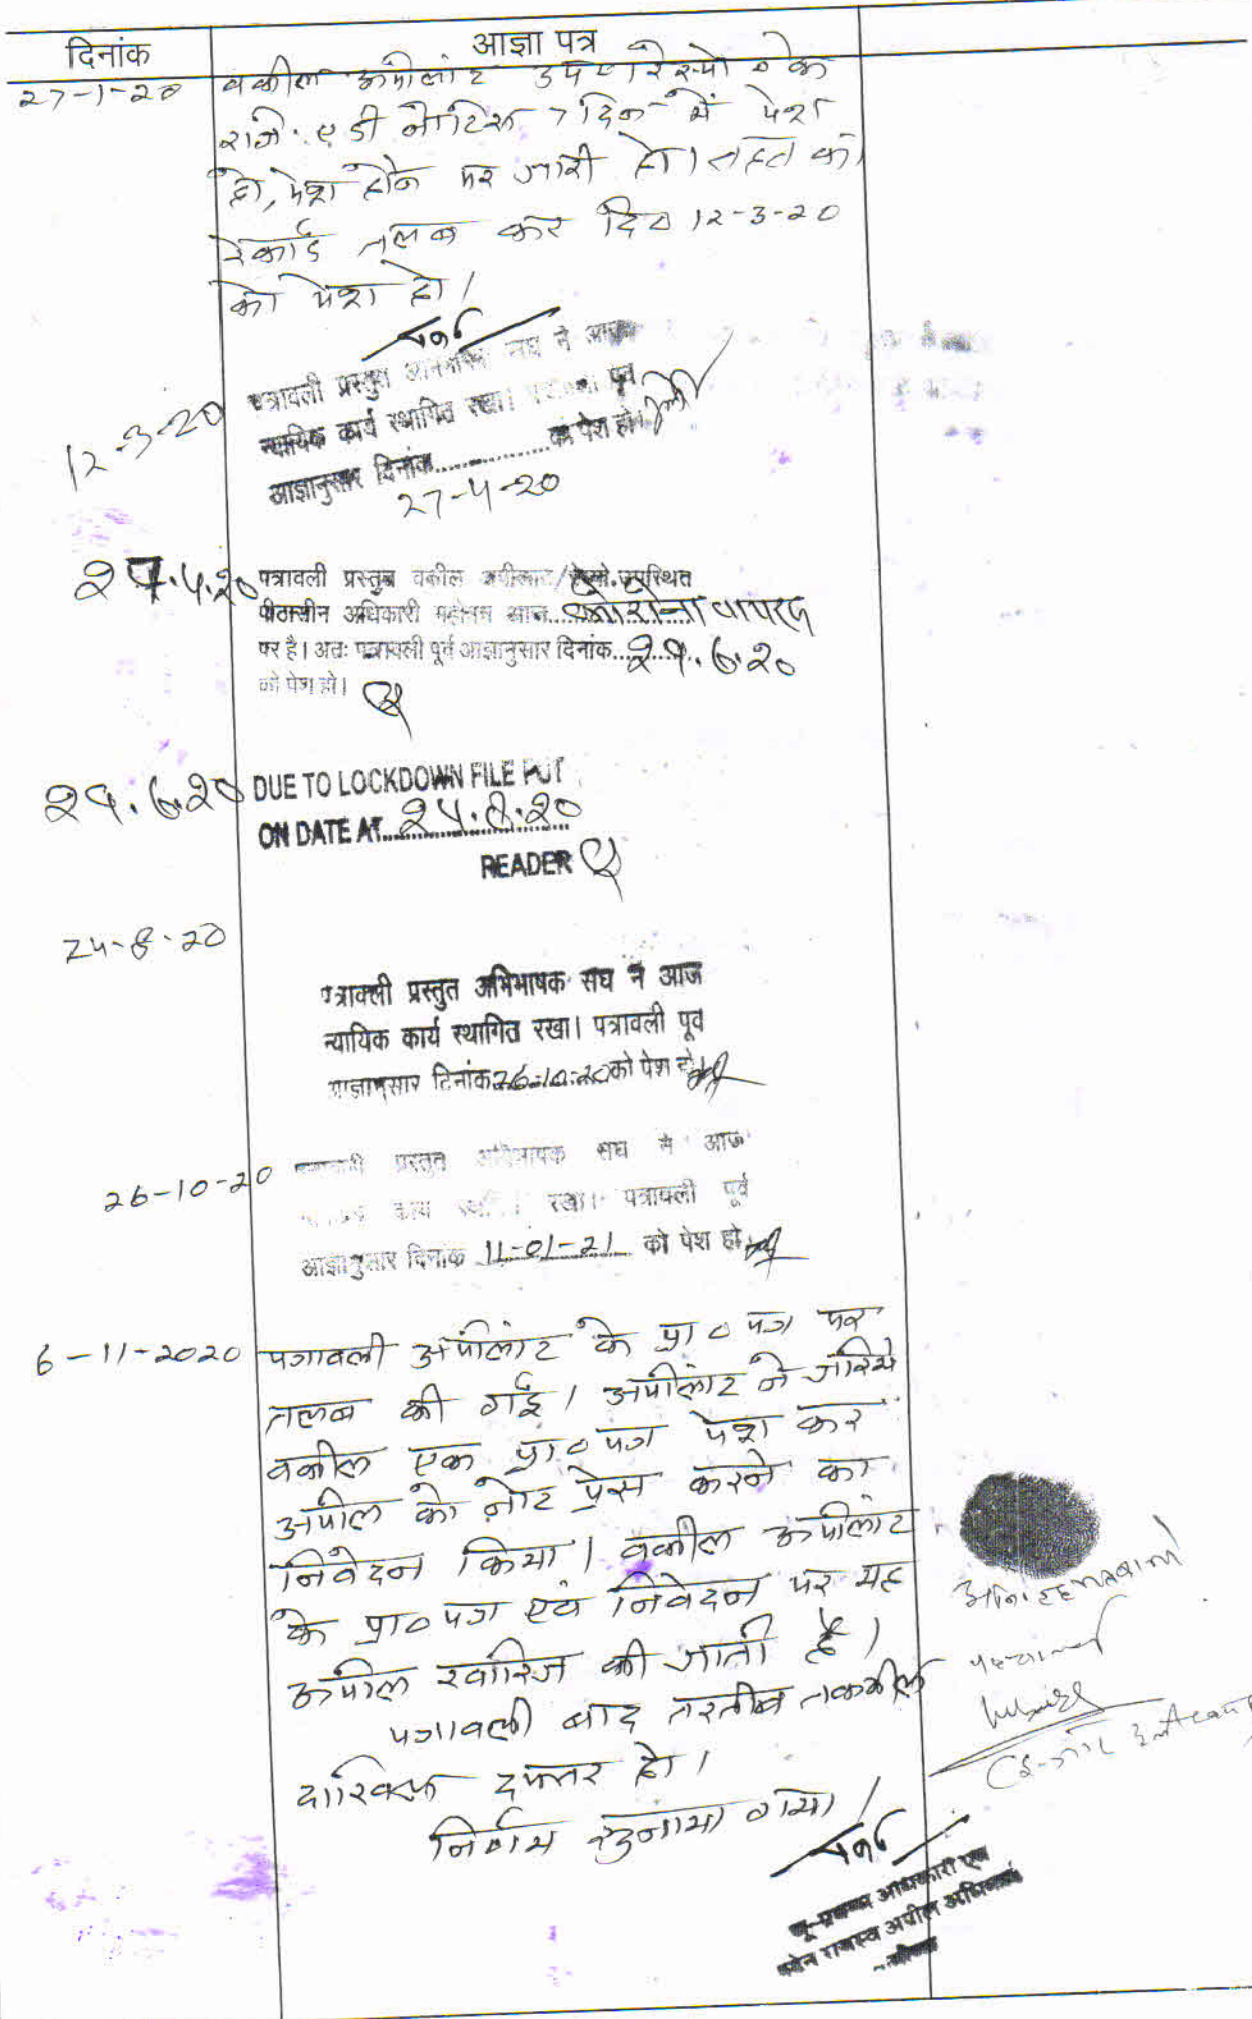 दिनांक आज्ञा पत्र
27-1-20 वकील अपीलांट उप० रेस्पो० के
रजि. ए डी नोटिस 7 दिन में पेश
हो, पेश होने पर जारी हो। तहत का
रेकार्ड तलब कर दि० 12-3-20
को पेश हो।
12-3-20 पत्रावली प्रस्तुत अभिभाषक संघ ने आज
न्यायिक कार्य स्थागित रखा। पत्रावली पूर्व
आज्ञानुसार दिनांक............को पेश हो।
27-4-20
27.4.20 पत्रावली प्रस्तुत वकील अपीलांट/रेस्पो. उपस्थित
पीठासीन अधिकारी महोदय आज...कोरोना वायरस
पर है। अतः पत्रावली पूर्व आज्ञानुसार दिनांक...29.6.20
को पेश हो।
29.6.20 DUE TO LOCKDOWN FILE PUT
ON DATE AT...24.8.20
READER
24-8-20
पत्रावली प्रस्तुत अभिभाषक संघ ने आज
न्यायिक कार्य स्थागित रखा। पत्रावली पूर्व
आज्ञानुसार दिनांक 26-10-20 को पेश हो।
26-10-20 पत्रावली प्रस्तुत अभिभाषक संघ ने आज
कार्य रखा। पत्रावली पूर्व
आज्ञानुसार दिनांक 11-01-21 को पेश हो
6-11-2020 पत्रावली अपीलांट के प्रा० पत्र पर
तलब की गई। अपीलांट ने जरिये
वकील एक प्रा० पत्र पेश कर
अपील को नोट प्रेस करने का
निवेदन किया। वकील अपीलांट
के प्रा० पत्र एवं निवेदन पर यह
अपील खारिज की जाती है।
पत्रावली बाद तरतीब तकमील
दाखिल दफ्तर हो।
निर्णय सुनाया गया।
भू-प्रबन्ध अधिकारी एवं
पदेन राजस्व अपील अधिकारी